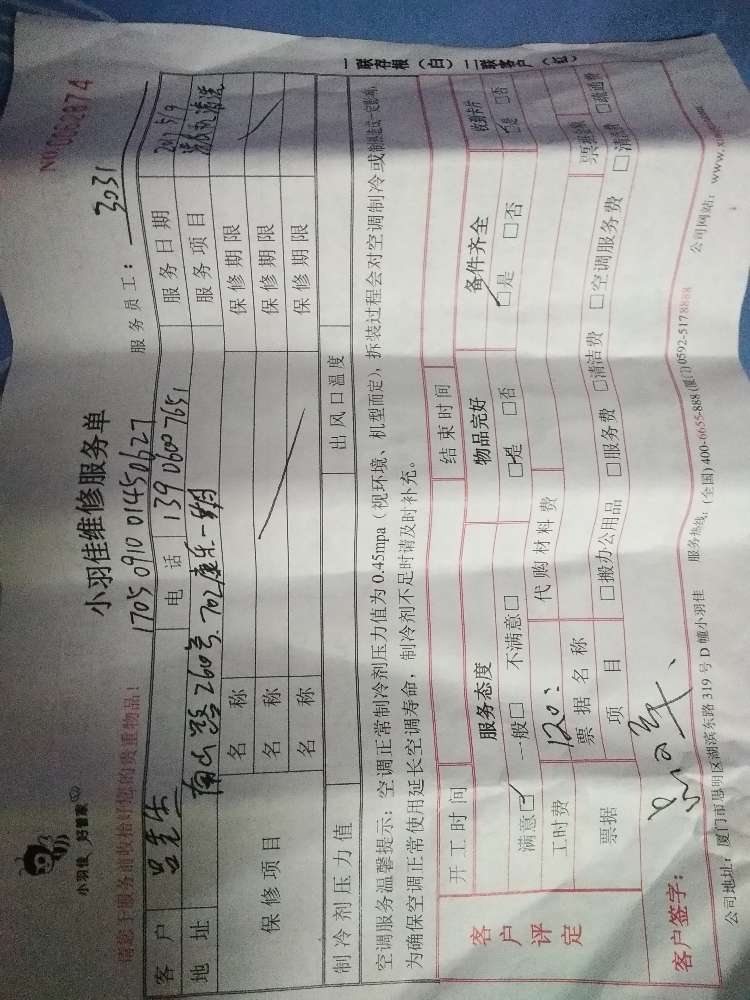 小羽佳 好管家
小羽佳维修服务单
No.0062874
请您于服务前收拾好您的贵重物品!
1705091001450627
服务员工: 3031
客户 吕先生 电话 13906007651 服务日期 2017 5/9
地址 南山路260号702康乐一期 服务项目 清洗
保修项目 名称 保修期限
名称 保修期限
名称 保修期限
制冷剂压力值 出风口温度
空调服务温馨提示:空调正常制冷剂压力值为0.45mpa(视环境、机型而定),拆装过程会对空调制冷或制热造成一定影响,
为确保空调正常使用延长空调寿命,制冷剂不足时请及时补充。
一联存根(白)二联客户(红)
开工时间 结束时间
客户评定 服务态度 物品完好 备件齐全 收到卡片
满意□ 一般□ 不满意□ □是 □否 □是 □否 □是 □否
工时费 120. 代购材料费
票据 票据名称 票据金额
项目 □搬办公用品 □服务费 □清洁费 □空调服务费 □清洗费 □疏通费
客户签字:
公司地址:厦门市思明区湖滨东路319号D幢小羽佳 服务热线:(全国)400-6655-888(厦门)0592-5178888 公司网站: